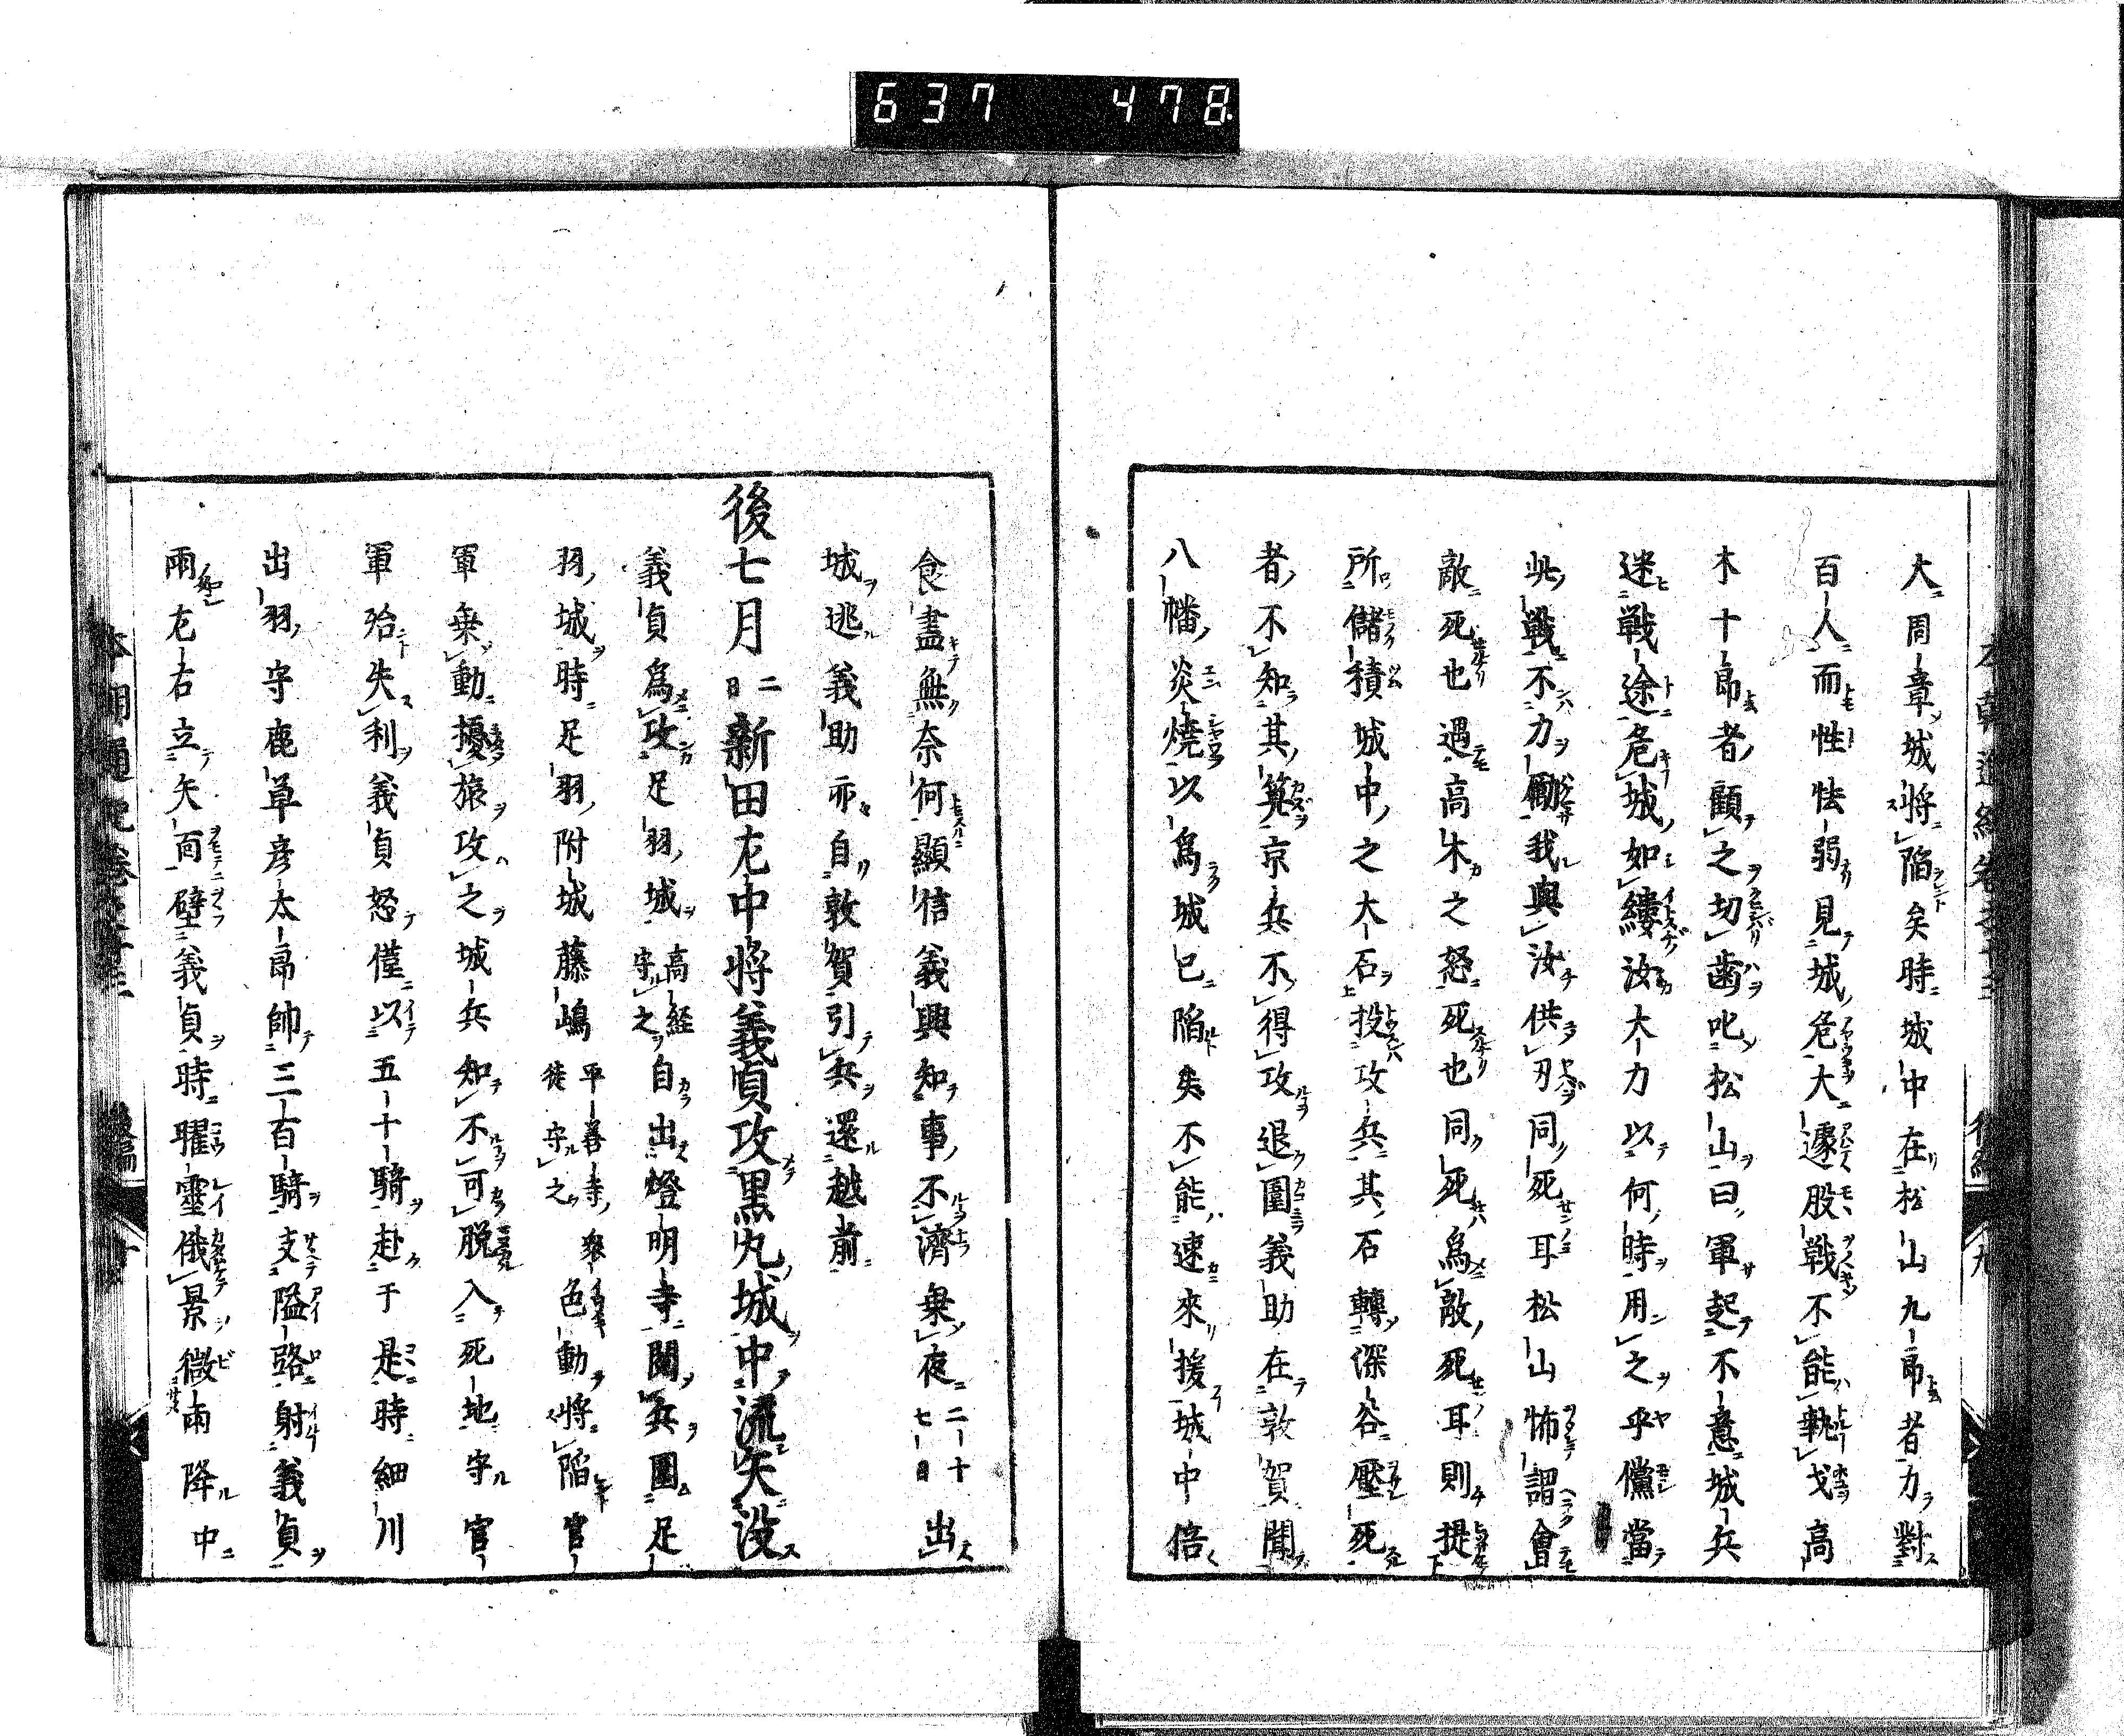 637 478
大周章城將陷矣時城中在松山九郎者力對
百人而性怯弱見城危大遽股戰不能執戈高
木十郎者顧之切齒叱松山曰軍起不意城兵
迷戰途危城如縷汝大力以何時用之乎儻當
此戰不力勵我與汝供刃同死耳松山怖謂會
敵死也遇高木之怒死也同死爲敵死耳則提
所儲積城中之大石投攻兵其石轉深谷壓死
者不知其算京兵不得攻退圍義助在敦賀聞
八幡炎燒以爲城已陷矣不能速來援城中倍
食盡無奈何顯信義興知事不濟棄夜二十七日出
城逃義助亦自敦賀引兵還越前
後七月二日新田左中將義貞攻黒丸城中流矢没
義貞爲攻足羽城高經守之自出燈明寺閲兵圍足
羽城時足羽附城藤嶋平善寺衆徒守之色動將陷官
軍乗動擾旅攻之城兵知不可脱入死地守官
軍殆失利義貞怒僅以五十騎赴于是時細川
出羽守鹿草彦太郎帥三百騎支隘路射義貞
雨左右立矢面壁義貞時曜靈俄景微雨降中